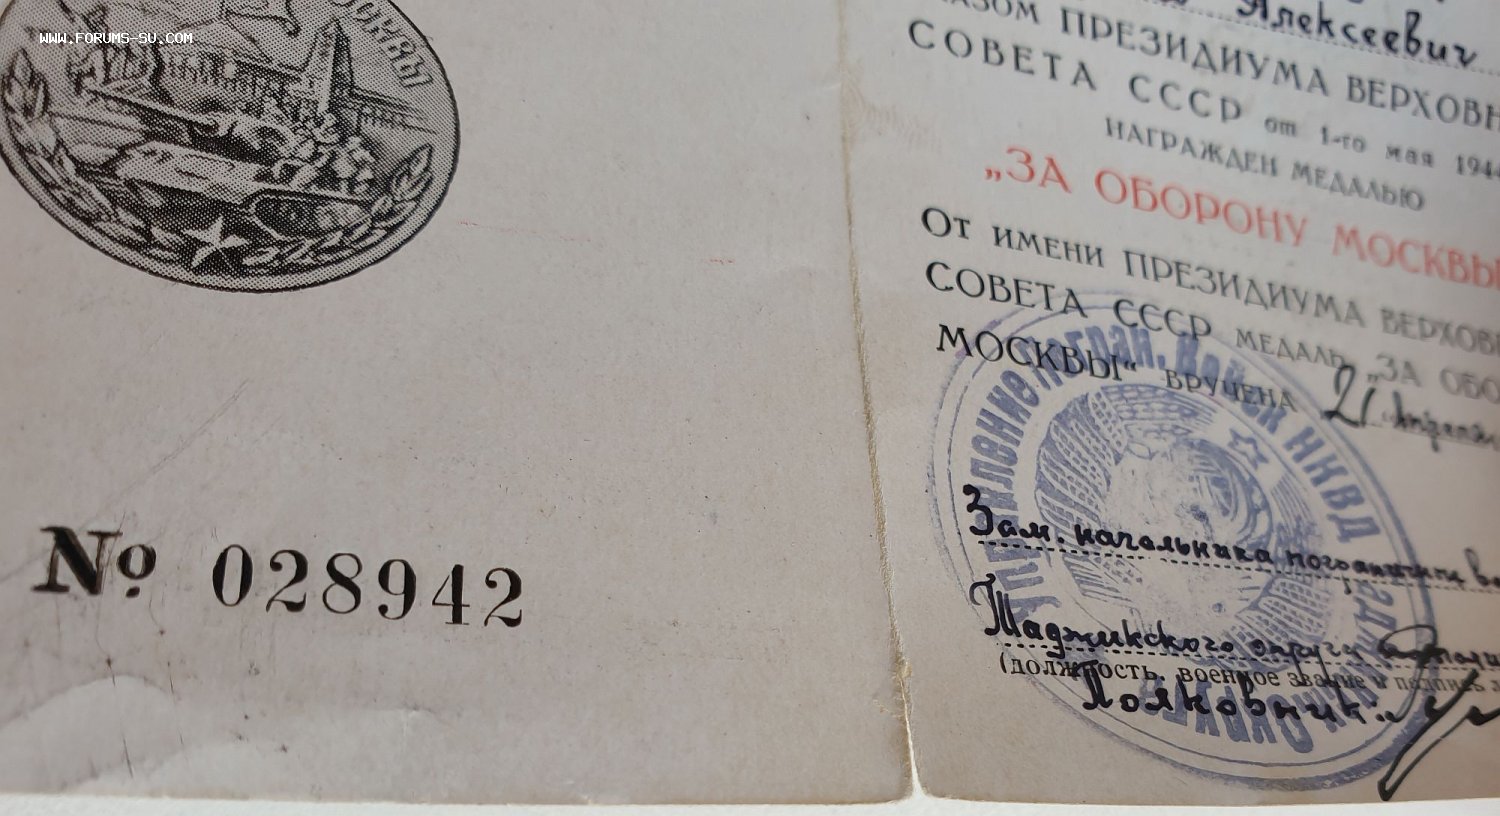 WWW.FORUMS-SU.COM
МОСКВЫ
№ 028942
Алексеевич
ПРЕЗИДИУМА ВЕРХОВН
СОВЕТА СССР от 1-го мая 1944
НАГРАЖДЕН МЕДАЛЬЮ
„ЗА ОБОРОНУ МОСКВЫ
От имени ПРЕЗИДИУМА ВЕРХОВН
СОВЕТА СССР МЕДАЛЬ „ЗА ОБО
МОСКВЫ“ ВРУЧЕНА 21
Зам. начальника
Таджикского округа
(должность, военное звание и подпись
Полковник
Погран. Войск НКВД